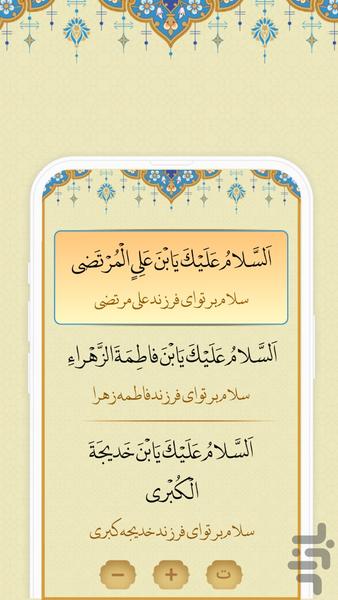 اَلسَّلامُ عَلَيْكَ يَابْنَ عَلِيٍ الْمُرْتَضى
سلام بر تو ای فرزند علی مرتضی
اَلسَّلامُ عَلَيْكَ يَابْنَ فاطِمَةَ الزَّهْراءِ
سلام بر تو ای فرزند فاطمه زهرا
اَلسَّلامُ عَلَيْكَ يَابْنَ خَديجَةَ
الْكُبْرى
سلام بر تو ای فرزند خدیجه کبری
− + ت
بازار